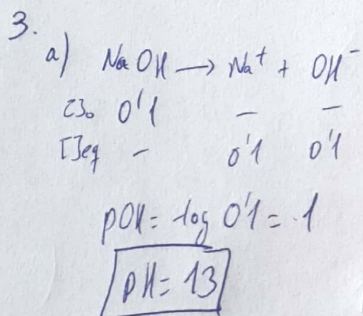 3.
a) NaOH → Na⁺ + OH⁻
[]₀ 0'1 - -
[]eq - 0'1 0'1
pOH = -log 0'1 = 1
pH = 13